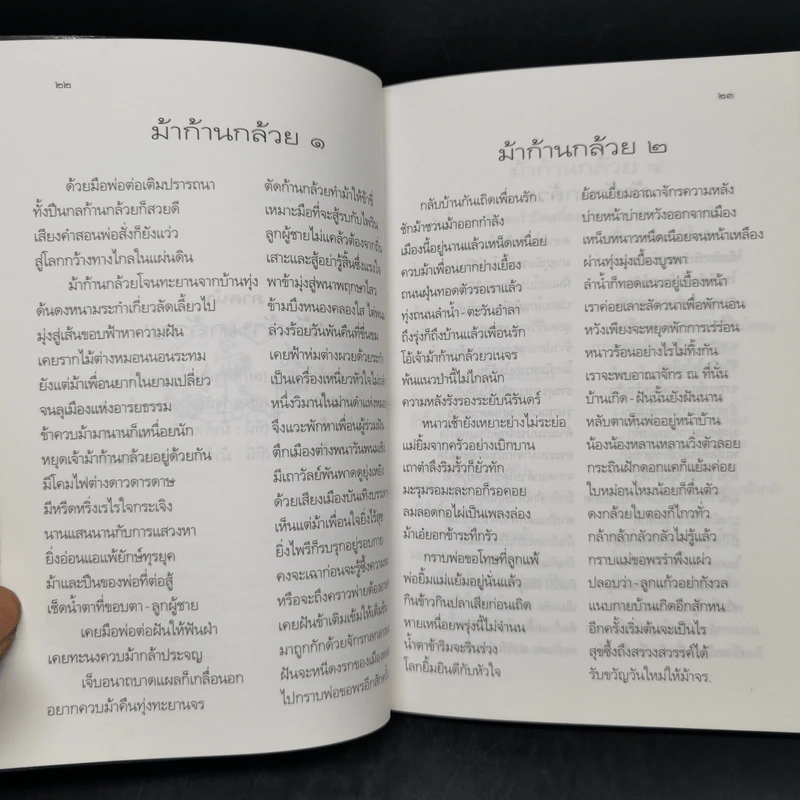 ๒๒
ม้าก้านกล้วย ๑
ด้วยมือพ่อต่อเติมปรารถนา ตัดก้านกล้วยทำม้าให้ข้าขี่
ทั้งปืนกลก้านกล้วยก็สวยดี เหมาะมือที่จะสู้รบกับไพริน
เสียงคำสอนพ่อสั่งก็ยังแว่ว ลูกผู้ชายไม่แคล้วต้องจากถิ่น
สู่โลกกว้างทางไกลในแผ่นดิน เสาะและสู้อยู่รู้สิ้นซึ่งแรงใจ
ม้าก้านกล้วยโจนทะยานจากบ้านทุ่ง พาข้ามุ่งสู่พนาพฤกษาไสว
ด้นดงหนามระกำเกี่ยวลัดเลี้ยวไป ข้ามบึงหนองคลองใส
มุ่งสู่เส้นขอบฟ้าหาความฝัน ล่วงร้อยวันพันคืนที่ขื่นขม
เคยรากไม้ต่างหมอนนอนระทม เคยฟ้าห่มต่างผวยด้วย
ยังแต่ม้าเพื่อนยากในยามเปลี่ยว เป็นเครื่องเหนี่ยวหัวใจ
จนลุเมืองแห่งอารยธรรม หนึ่งวิมานในม่านดำแห่ง
ข้าควบม้ามานานก็เหนื่อยนัก จึงแวะพักหาเพื่อนผู้ร่วมฝัน
หยุดเจ้าม้าก้านกล้วยอยู่ด้วยกัน ตึกเมืองต่างพนาวัน
มีโคมไฟต่างดาวดารดาษ มีเถาวัลย์พันพาดดูยุ่งเหยิง
มีหรีดหริ่งเรไรใจกระเจิง ด้วยเสียงเมืองบันเทิง
นานแสนนานกับการแสวงหา เห็นแต่ม้าเพื่อนใจยิ่งไร้สุข
ยิ่งอ่อนแอแพ้ยักษ์ทุรยุค ยิ่งไพรีก็รบรุกอยู่รอบกาย
ม้าและปืนของพ่อที่ต่อสู้ คงจะเฉาก่อนจะรู้ซึ่งความ
เช็ดน้ำตาที่ขอบตา - ลูกผู้ชาย หรือจะถึงคราวพ่ายต้อง
เคยมือพ่อต่อฝันให้ฟันฝ่า เคยฝันข้าเติมเข้มให้เต็มขั้น
เคยทะนงควบม้ากล้าประจญ มาถูกกักด้วยจักรกล
เจ็บอนาถบาดแผลก็เกลื่อนอก ฝันจะหนีดงรกของเมือง
อยากควบม้าคืนทุ่งทะยานจร ไปกราบพ่อขอพรอีกสักครั้ง
๒๓
ม้าก้านกล้วย ๒
กลับบ้านกันเถิดเพื่อนรัก ย้อนเยี่ยมอาณาจักรความหลัง
ชักม้าชวนม้าออกกำลัง บ่ายหน้าบ่ายหวังออกจากเมือง
เมืองนี้อยู่นานแล้วเหน็ดเหนื่อย เหน็บหนาวหนืดเนือยจนหน้าเหลือง
ควบม้าเพื่อนยากย่างเยื้อง ผ่านทุ่งมุ่งเบื้องบูรพา
ถนนฝุ่นทอดตัวรอเราแล้ว ลำน้ำก็ทอดแนวอยู่เบื้องหน้า
ทุ่งถนนลำน้ำ - ตะวันอำลา เราค่อยเลาะลัดวนาเพื่อพักนอน
ถึงรุ่งก็ถึงบ้านแล้วเพื่อนรัก หวังเพียงจะหยุดพักการเร่ร่อน
โอ้เจ้าม้าก้านกล้วยวเนจร หนาวร้อนอย่างไรไม่ทิ้งกัน
พ้นแนวป่านี้ไม่ไกลนัก เราจะพบอาณาจักร ณ ที่นั่น
ความหลังรังรองระยับนิรันดร์ บ้านเกิด - ฝันนั้นยังฝันนาน
หนาวเช้ายังเหยาะย่างไม่ระย่อ หลับตาเห็นพ่ออยู่หน้าบ้าน
แม่ยิ้มจากครัวอย่างเบิกบาน น้องน้องหลานหลานวิ่งตัวลอย
เถาตำลึงริมรั้วก็ยั่วทัก กระถินฝักดอกแคก็แย้มค่อย
มะรุมรอมะละกอก็รอคอย ใบหม่อนไหมน้อยก็ตื่นตัว
ลมลอดกอไผ่เป็นเพลงล่อง ดงกล้วยใบตองก็ไกวทั่ว
ม้าเอ๋ยอกข้าระทึกรัว กล้ากล้ากลัวกลัวไม่รู้แล้ว
กราบพ่อขอโทษที่ลูกแพ้ กราบแม่ขอพรรำพึงแผ่ว
พ่อยิ้มแม่แย้มอยู่นั่นแล้ว ปลอบว่า - ลูกแก้วอย่ากังวล
กินข้าวกินปลาเสียก่อนเถิด แนบกายบ้านเกิดอีกสักหน
หายเหนื่อยพรุ่งนี้ไม่จำนน อีกครั้งเริ่มต้นจะเป็นไร
น้ำตาข้าริมจะรินร่วง สุขซึ้งถึงสรวงสวรรค์ได้
โลกยิ้มยินดีกับหัวใจ รับขวัญวันใหม่ให้ม้าจร.